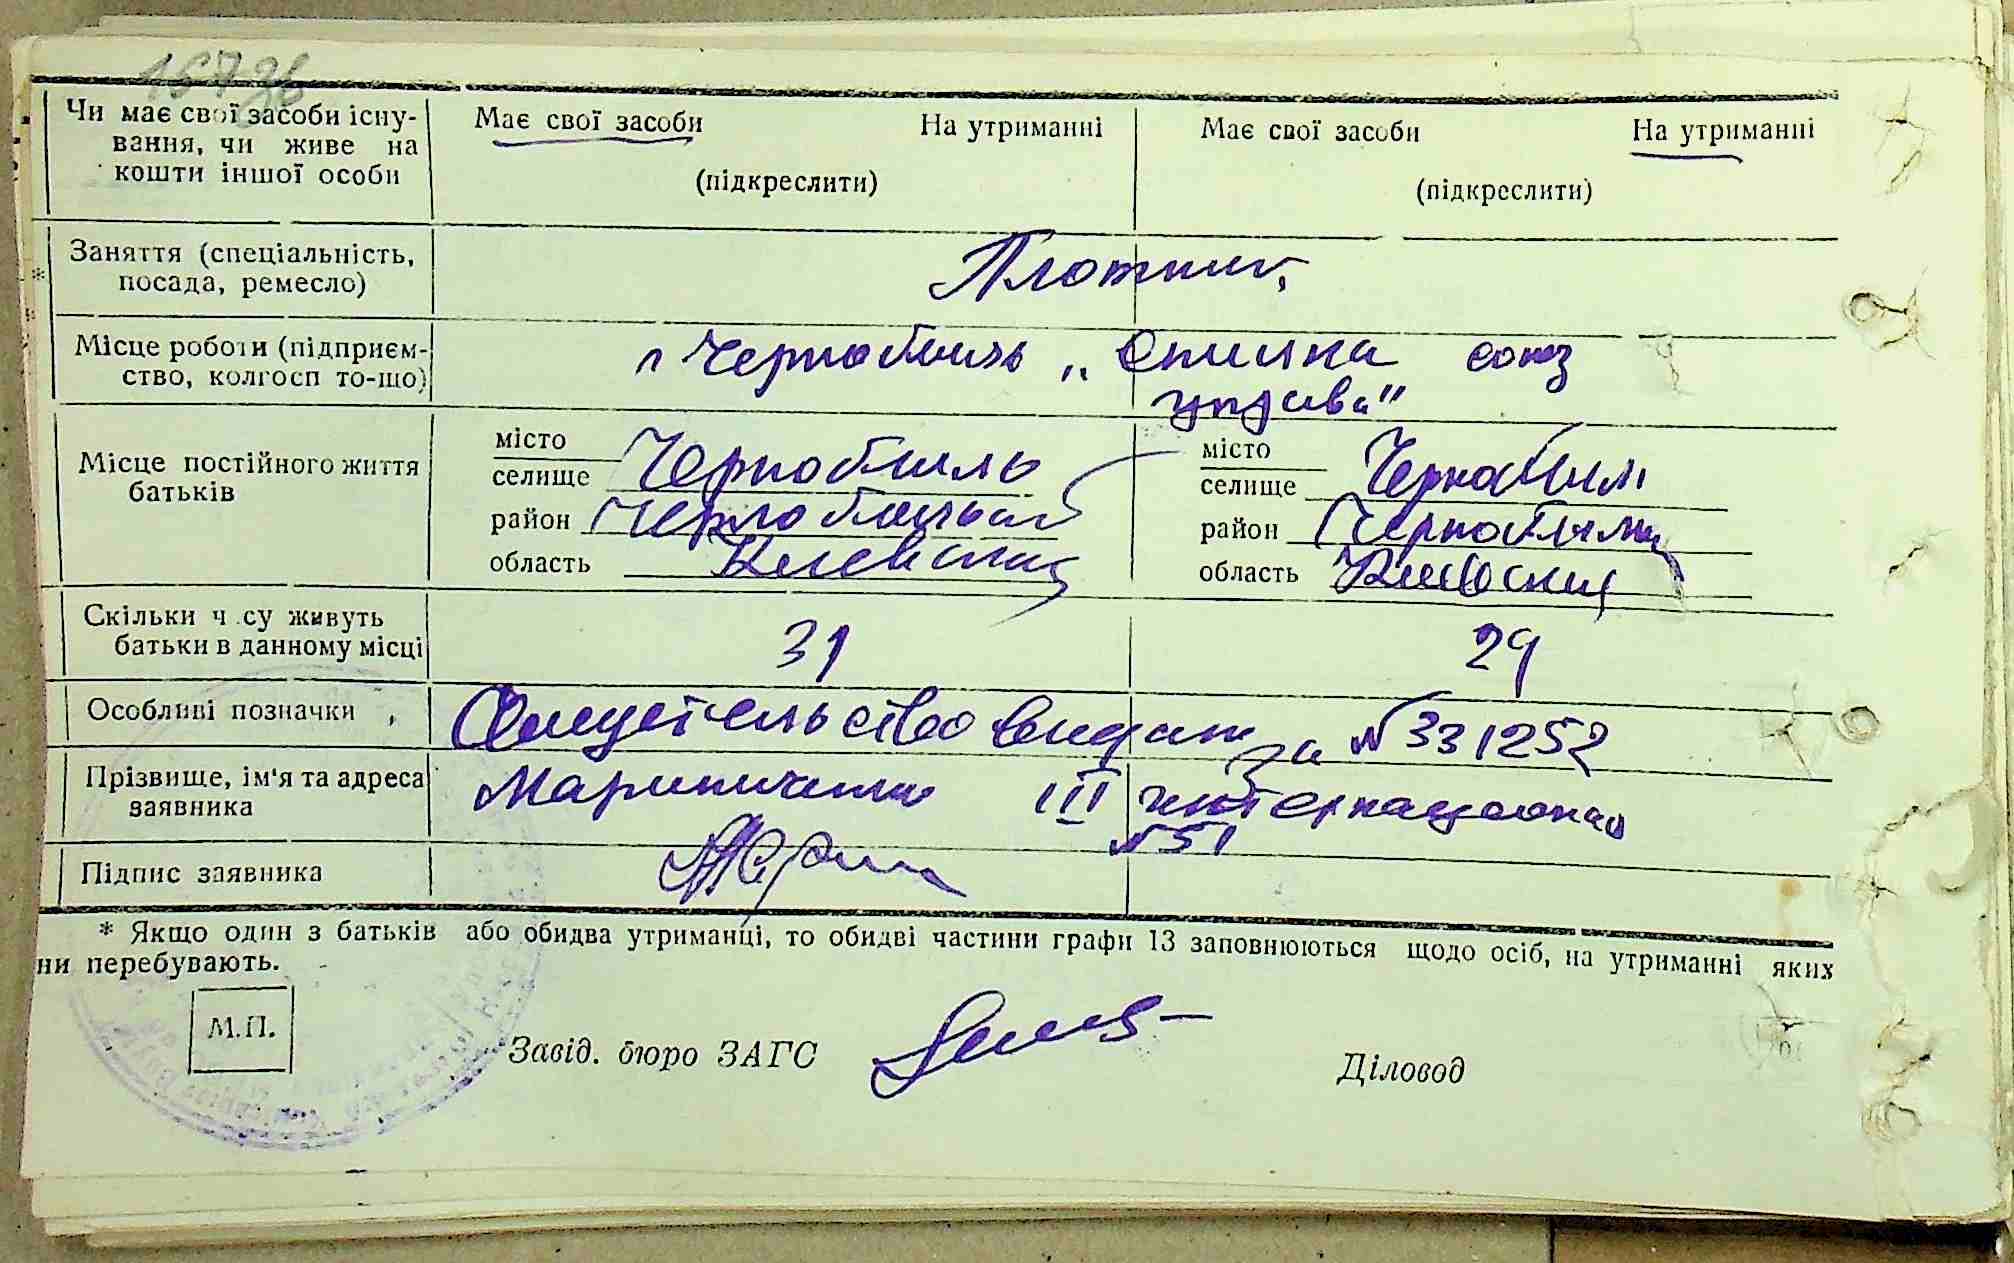 Чи має свої засоби існу-
вання, чи живе на
кошти іншої особи
Має свої засоби На утриманні
(підкреслити)
Має свої засоби На утриманні
(підкреслити)
Заняття (спеціальність,
посада, ремесло)
Плотник
Місце роботи (підприєм-
ство, колгосп то-що)
г Чернобыль „Спилка союз
управа"
Місце постійного життя
батьків
місто
селище Чернобыль
район
область Киевский
місто
селище Чернобыль
район
область Киевский
Скільки ч су живуть
батьки в данному місці
31
29
Особливі позначки
Свидетельство выдан за №331252
Прізвище, ім'я та адреса
заявника
III интернационал
№51
Підпис заявника
* Якщо один з батьків або обидва утриманці, то обидві частини графи 13 заповнюються щодо осіб, на утриманні яких
ни перебувають.
М.П.
Завід. бюро ЗАГС
Діловод